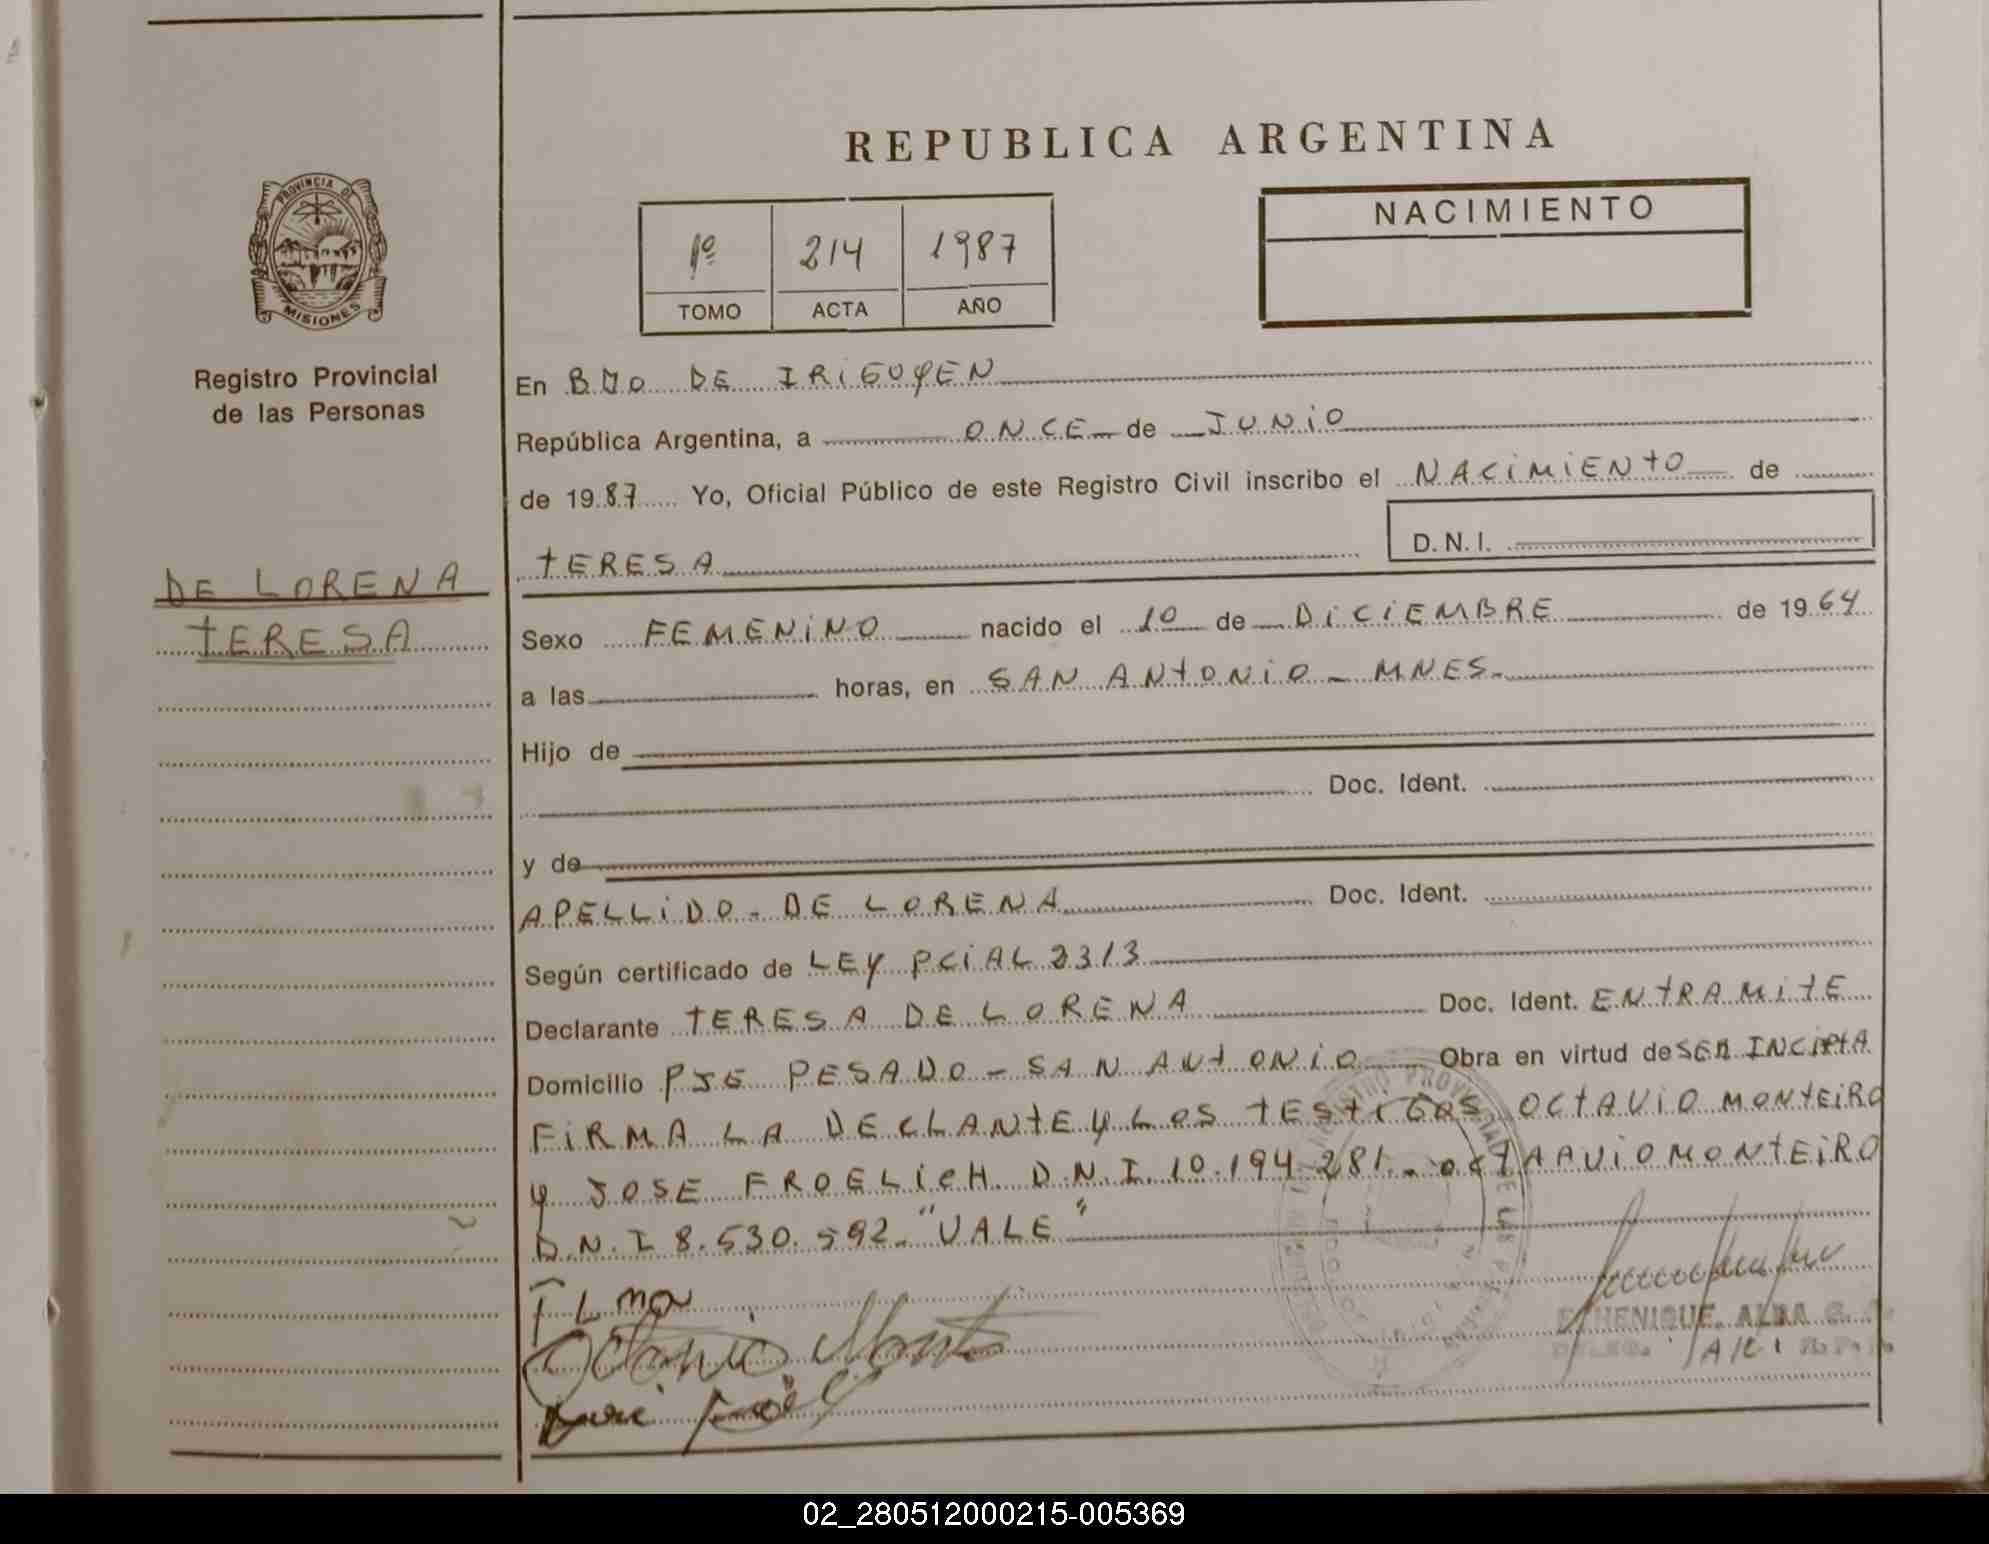 REPUBLICA ARGENTINA
PROVINCIA DE
MISIONES
Registro Provincial
de las Personas
1º 214 1987
TOMO ACTA AÑO
NACIMIENTO
DE LORENA
TERESA
En BDO DE IRIGOYEN
República Argentina, a ONCE de JUNIO
de 1987 Yo, Oficial Público de este Registro Civil inscribo el NACIMIENTO de
TERESA D.N.I.
Sexo FEMENINO nacido el 10 de DICIEMBRE de 1964
a las horas, en SAN ANTONIO - MNES.
Hijo de
Doc. Ident.
y de
APELLIDO - DE LORENA Doc. Ident.
Según certificado de LEY PCIAL 2313
Declarante TERESA DE LORENA Doc. Ident. EN TRAMITE
Domicilio PJE PESADO - SAN ANTONIO Obra en virtud de SER INCIPTA
FIRMA LA DECLANTE Y LOS TESTIGOS OCTAVIO MONTEIRO
Y JOSE FROELICH D.N.I. 10.194.281 - OCTAAVIO MONTEIRO
D.N.I 8.530.592. "VALE"
Octavio
José
ECHENIQUE, ALBA G.
02_280512000215-005369